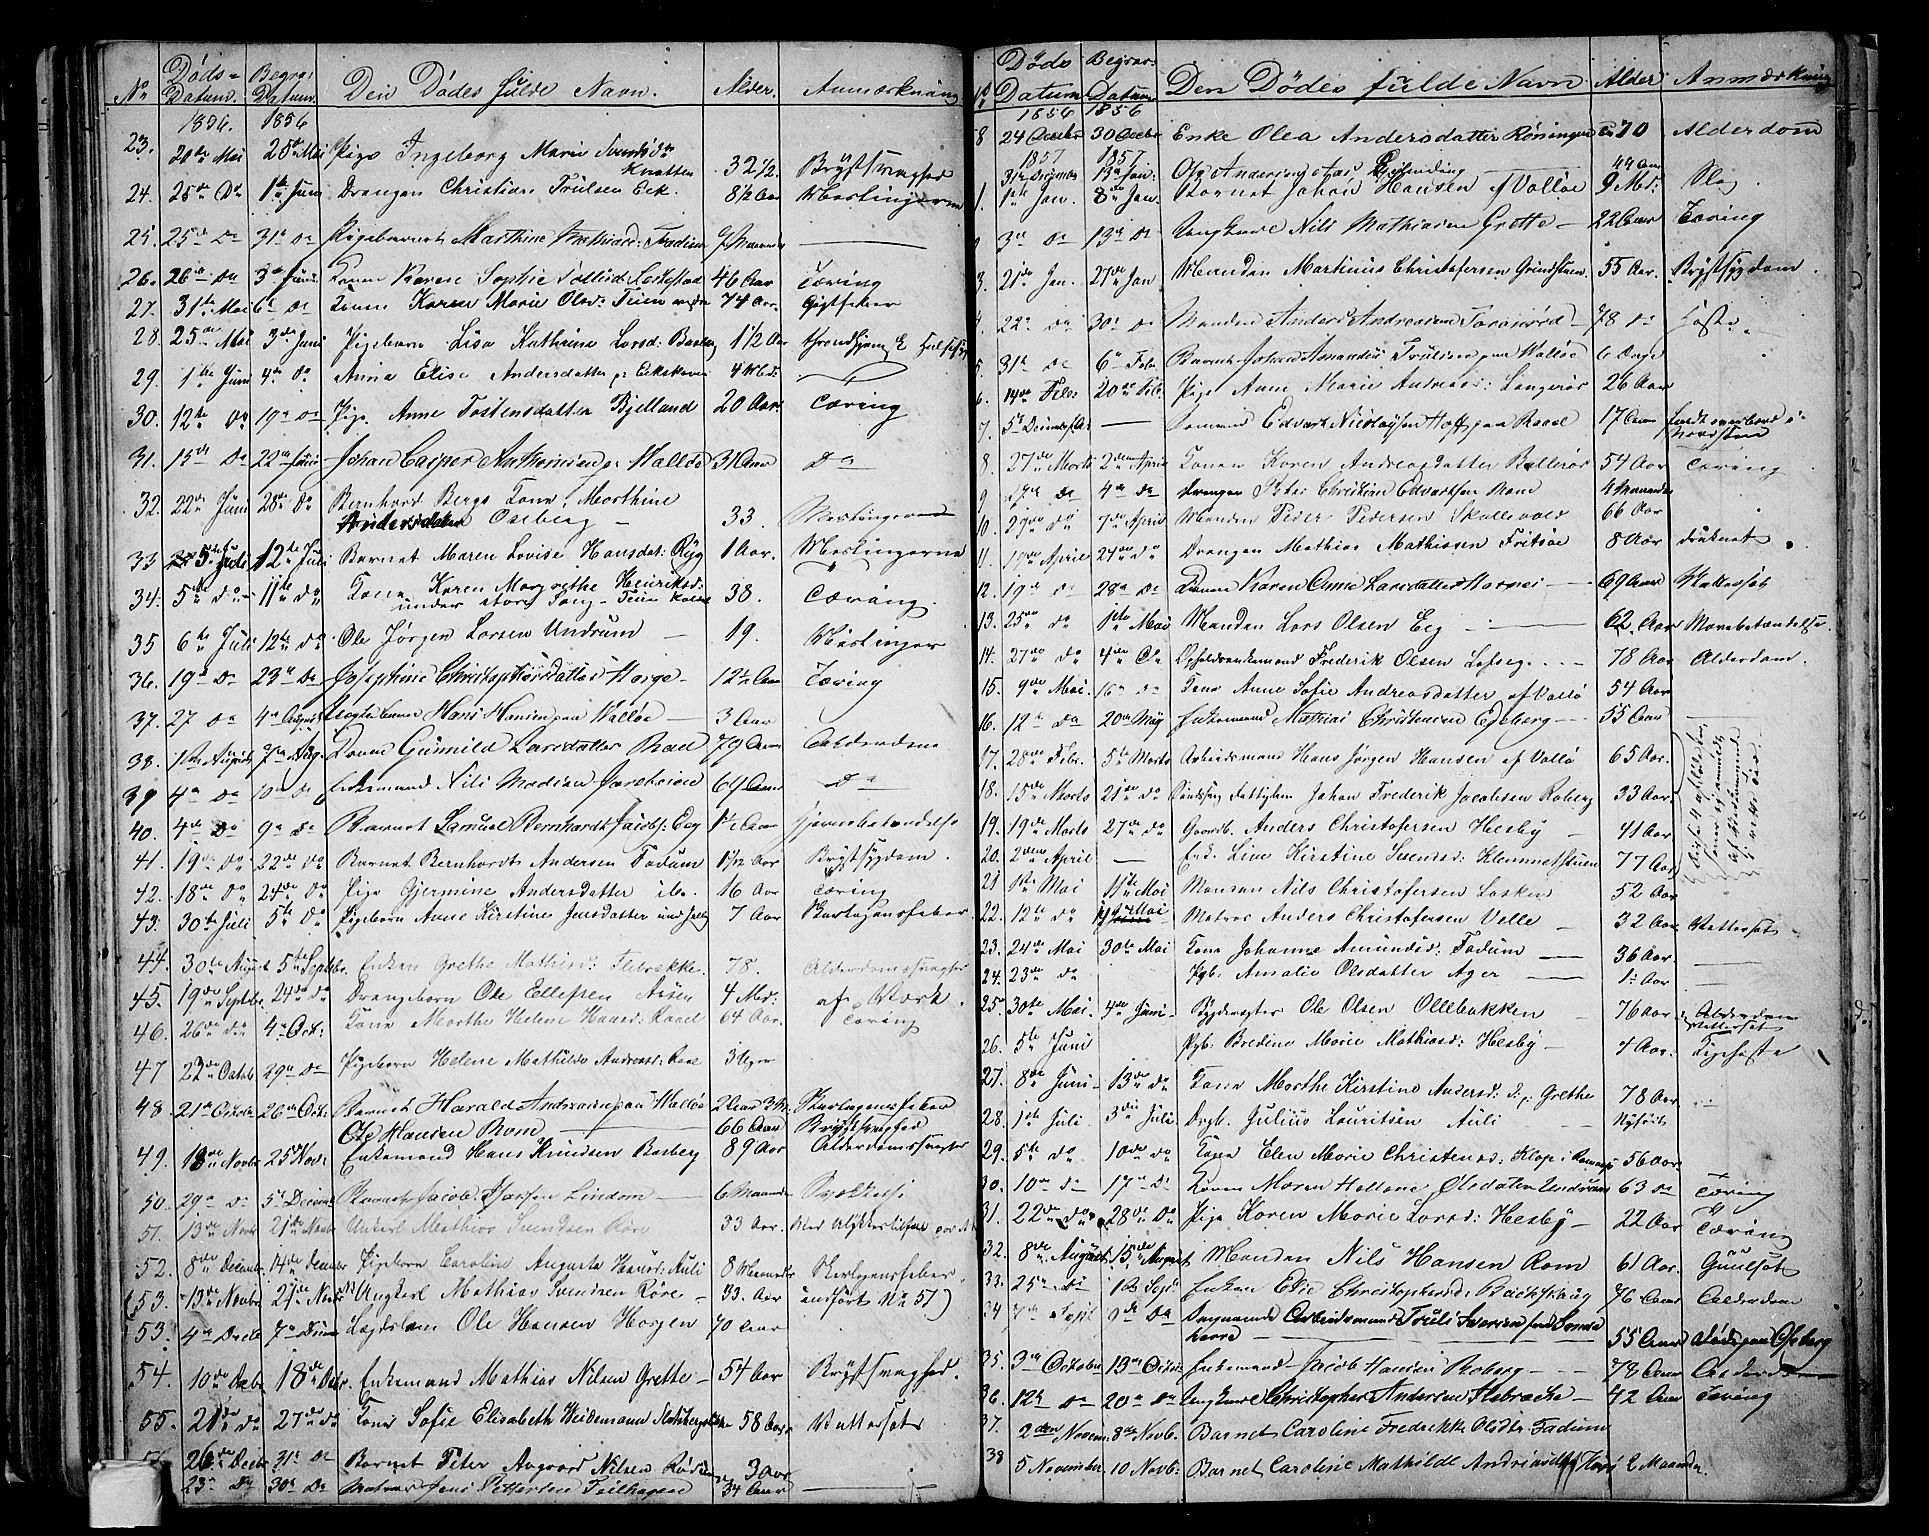 No Døds- Datum. Begra: Datum. Den Dødes fulde Navn. Alder. Anmærkning
1856. 1856
23. 20de Mai 25de Mai Pige Ingeborg Marie
Knatten 32 1/2. Brystsvaghed
24. 25de Do 1ste Juni Drengen Christian Trulsen Eek 8 1/2 Aar Mæslingerne
25. 25de Do 31te Do Pigebarnet Marthine Mathisd: Fradium
26. 26de Do 3de Juni Konen Karen Sophie 46 Aar Tæring
27. 31te Mai 6te Do Konen Karen Marie Olsd: Teien 74 Aar. Gigtfeber
28. 25de Mai 3de Juni Pigebarn Lisa Kathrine Larsd: Basberg 1 1/2 Aar
29. 1ste Juni 4de Do Anna Elise Andersdatter pr Eekskoven 4 Md:
30. 12te Do 19de Do Pige Anne Tostensdatter Bjelland 20 Aar. Tæring
31. 15de Do 22de Juni Johan Casper Anthonisen pr Walløe 31 Aar Do
32. 22de Juni 28de Do Bernhard Bergs Kone Marthine
Andersdatter Oseberg 33. Mæslingerne
33 5te Juli 12te Juli Barnet Maren Lovise Hansdat: Ryg 1 Aar. Mæslingerne
34. 5te Do 11te Do Kone Karen Margrethe Henriksd:
under store 38. Tæring.
35 6te Juli 12te Do Ole Jørgen Larsen Undrum 19. Mæslinger
36. 19de Do 23de Do Josephine Christophersdatter Horge 12 1/2 Aar Tæring
37. 27 Do 4de August Hans Hansen paa Walløe 3 Aar
38. 1ste August 7de Aug. Konen Gunnild Larsdatter Rael 79 Aar Alderdom
39 4de Do 10de Do Enkemand Nils Madsen 69 Aar Do
40. 4de Do 9de Do Barnet Samuel Bernhardt Jacobs: Eeg 1 1/2 Aar Hjernebetændelse
41. 19de Do 22de Do Barnet Bernhardt Andersen Fadum 1 1/12 Aar Brystsygdom.
42. 18de Do 24de Do Pige Gjermine Andersdatter ibn 16 Aar Tæring
43. 30te Juli 5te Do Pigebarn Anne Kirstine Jensdatter 7 Aar Skarlagensfeber.
44. 30te August 5te Septbr. Enken Grethe Mathisd: Flebrække. 78. Alderdomssvaghed
45. 19de Septbr. 24de Do Drengebarn Ole Ellefsen Aasen 4 Md: af Værk.
46. 26de Do 4de Oct: Kone Marthe Helene Hansd: Raael 64 Aar. Tæring
47 23de Octob. 29de Do Pigebarn Helene Mathilde Andreasd: Rael 3 Uger
48. 21de Octobr. 26de Oct. Barnet Harald Andreasen paa Walløe 2 Aar 3 M. Skarlagensfeber
Ole Hansen Rom 66 Aar Brystsvaghed
49. 18de Novbr. 25 Nov: Enkemand Hans Knudsen Basberg 89 Aar Alderdomssvaghed
50. 29de Do 5te Decembr Barnet Jacob Hansen Lindom 6 Maaneder
51. 13de Novbr 21de Novbr Unkarl Mathias Svendsen Røre 33 Aar.
52. 8de Decembr. 14de Decembr Pigebarn Caroline Augusta Hansd: Auli 8 Maaneder Skarlagensfeber.
(53. 13de Novbr 21de Novbr Ungkarl Mathias Svendsen Røre 33. Aar anført No 51)
53. 4de Decbr. 7de Ole Hansen Horgen 70 Aar
54. 10de Decbr 18de Decbr. Enkemand Mathias Nilsen Grette 54 Aar Brystsvaghed.
55. 21de Do 27de Do Kone Sofie Elisabeth Weidemann 58 Aar. Vattersot
56. 26de Decbr 31te Do Barnet Peter Aagaard Nilsen 3 Aar
23de Do 30te Do Matros Jens Pettersen 34 Aar
No Døds Datum Begrav: Datum Den Dødes fulde Navn Alder Anmærkning
1856 1856
8 24 Decbr 30 Decbr Enke Olea Andersdatter Røningen 70 Alderdom
1857 1857
31te Decembr 13de Jan: Ole Andersen 44 Aar
1. 1ste Jan. 8de Jan Barnet Johan Hansen af Valløe 9 Md: Slag
3de Do 13de Do Ungkarl Nils Mathiasen Grette 22 Aar Tæring
3. 21de Jan. 27de Jan Manden Martinus Christofersen Grindstuen 55 Aar. Brystsygdom.
4. 22de Do 30te Do Manden Anders Andreasen 78 Do Hoste.
5. 31te Do 6te Febr Barnet Johan Amandus Trulsen paa Walløe 6 Dage
6. 14de Febr 20de Feb. Pige Anne Marie Andreasd: Langerør 26 Aar
7. 5te Decembr Sømand Edvart Nicolaysen Hoff paa Raael 17 Aar faldt overbord i Nordsøen
8. 27de Marts 2den April Konen Karen Andreasdatter Bellerør 54 Aar Tæring
9 27de Do 4de Do Drengen Peter Christian Edvartsen Rom 4 Maaneder
10. 29de Do 7de April Manden Peder Pedersen Skallevold 66 Aar
11. 19de April 24de Do Drengen Mathias Mathissen Fritsøe 8 Aar druknet.
12. 19de Do 28de Do Konen Karen Onnie Larsdatter 69 Aar Vattersot
13. 25de Do 1ste Mai Manden Lars Olsen Eeg 62. Aar Mavebetændelse.
14. 27de Do 4de Do Opholdsenkemand Frederik Olsen Lofseg. 78 Aar Alderdom.
15. 9de Mai 16de Do Kone Anne Sofie Andreasdatter af Vallø 54 Aar
16. 12te Do 20de May Enkemand Mathias Christiansen Egeberg 55 Aar
17. 28de Febr. 5te Marts Arbeidsmand Hans Jørgen Hansen af Vallø 65 Aar.
18. 15de Marts 21de Do Fattiglem Johan Frederik Jacobsen Roberg 33 Aar.
19. 19de Marts 27de Do Gaardb. Anders Christofersen Hesby 41 Aar
20. 2den April Enk. Line Kirstine Svendsd: Klemmetstuen 77 Aar
21 1ste Mai 11te Mai Manden Nils Christofersen Lasken 52 Aar
22. 12te Do 19de Mai Matros Anders Christofersen Velle 32 Aar Vattersot
23. 24de Mai 30te Mai Kone Johanne Amundsd: Fadum 36 Aar
24. 23de Do Pgb: Amalie Olsdatter Ager 1 Aar
25 30te Mai 4de Juni Bygdemægter Ole Olsen Ollebakken 76 Aar Alderdom Vattersot
26. 5te Juni Pgb: Bredine Marie Mathiasd: Hesby 4 Aar. Kighoste
27. 8de Juni 13de Do Kone Marthe Kirstine Andersd: pr Grethe 78 Aar
28. 1ste Juli 3die Juli Drgb. Julius Lauritsen Auli Nyfødt
29. 5te Do 10de Do Kone Elen Marie Christensd: Klop i Ramnæs 56 Aar
30. 10de Do 17de Do Konen Maren Helland Olsdatter Undrum 63 Do Tæring
31. 22de Do 28de Do Pige Karen Marie Larsd: Hesby 22 Aar Tæring
32. 8de August 15de August Manden Nils Hansen Rom 61 Aar. Guulsot
33. 25de Do 1ste Sept. Enken Elie Christophersd: 76 Aar Alderdom
34 7de Sept 9de Do Arbeidsmand Truls Iversen
55 Aar Døde paa Oseberg
35. 3de October 13de Octobr Enkemand Jacob Hansen Roberg 78 Aar Alderdom
36. 12te Do 20de Do Ungkarl Christopher Andersen Flebrække 42 Aar Tæring
37. 2den Novem. 8de Novb. Barnet Caroline Fredrikke Olsdtr Fadum
38 5 November 10 Novb: Barnet Caroline Mathilde Andrias 2 Maaneder.